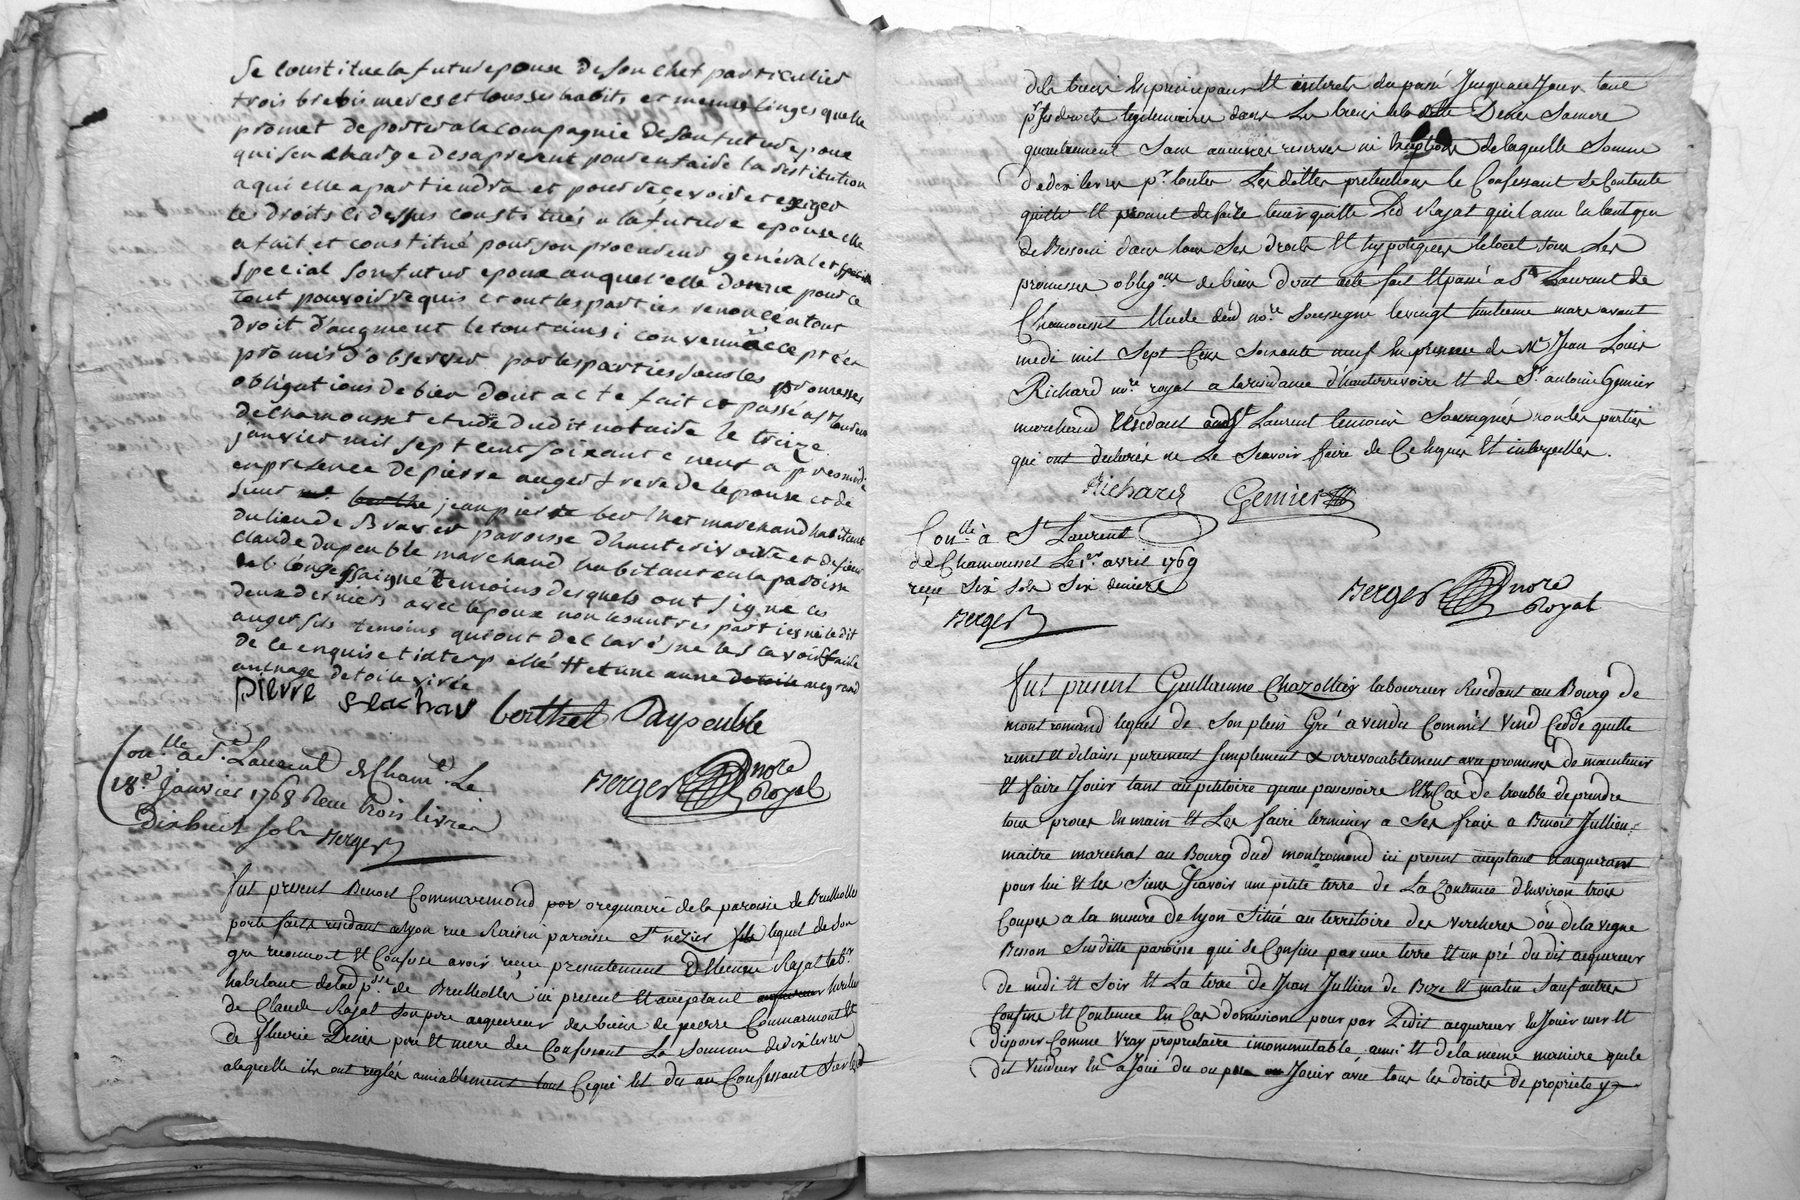 Se constitue la future epouse de son chef particulier
trois brebis meres et tous ses habits et menus linges quelle
promet de porter a la compagnie de son futur epoux
qui sen charge des apresent pour en faire la restitution
a qui elle apartiendra et pour recevoir et exiger
le droits ci dessus constitués a la future epouse elle
a fait et constitué pour son procureur général et special
special son futur epoux auquel elle donne pour ce
tout pouvoir requis et ont les parties renoncé a tout
droit d'augment le tout ainsi convenu accepté et
promis d'observer par les parties sous les promesses
obligations de bien dont acte fait et passé a st Laurent
de chamousset etude dudit notaire le treize
janvier mil sept cent soixante neuf a pres midi
en presence de pierre auger frere de lepouse et de
sieur jean pierre berthet marchand habitant
du lieu de Braver paroisse d'hauterivoire et de sieur
claude dupeuble marchand habitant en la paroisse
de longessaigne temoins desquels ont signe ces
deux derniers avec lepoux non les autres parties ni ledit
auger fils temoins qui ont declaré ne les savoir faire
de ce enquis et interpellé # et une aune de toile au grand
aunage de toile virée
pierre berthet Dupeuble
Conllé a St. Laurent de Chamt. Le
18e. Janvier 1768 Reçu trois livres
dixhuit sols Berger
Berger nore Royal
fut present Benoit Commarmond originaire de la paroisse de Brullioles
porte faix residant a Lyon rue Raisin paroisse St nézier lequel de son
gré reconnoit et Confesse avoir reçu presentement d'Etienne Rajat labr.
habitant de lad psse de Brullioles, ici present et acceptant
de Claude Rajat son pere acquereur des biens de pierre Commarmont et
de fleurie Denis pere et mere du Confessant La Somme de dix livres
a laquelle ils ont reglés amiablement tout Ce qui Est du au Confessant
dits biens En principaux et interets du passé Jusqu'au Jour tant
pr. ses droits legitimaires dans Les biens de Denis Samere
quautrement Sans aucunes reserves ni Exeptions de laquelle Somme
de dix livres pr. toutes Les dittes pretentions le Confessant Se Contente
quitte et promet de faire tenir quitte Led Rajat qu'il a mis En tant que
de Besoin dans tous Ses droits et hypoteques le tout Sous Les
promesses obligons. de biens dont acte fait et passé a St. Laurent de
Chamousset Etude dud nore. Soussigné le vingt huitieme mars avant
midi mil Sept Cens Soixante neuf En presence de Me Jean Louis
Richard nre. royal a la residance d'hauterrivoire et de Sr. antoine Genier
marchand Residant aud St Laurent temoins Soussignés non les parties
qui ont declarés ne Le Scavoir faire de Ce Enquis et interpellés.
Richard Genier
Conllé à St Laurent
de Chamousset Le 1er avril 1769
reçu Six Sols Six deniers
Berger
Berger nore Royal
fut present Guillaume Chazottier laboureur Residant au Bourg de
montromand lequel de Son plein Gré a vendu Commis Vend Cedde quitte
remet et delaisse purement Simplement & irrevocablement avec promesses de maintenir
et faire Jouir tant au petitoire quau possessoire et En Cas de trouble de prendre
tous proces En main et Les faire terminer a Ses frais a Benoit Jullien
maitre marechal au Bourg dud montromond ici present aceptant et acquerant
pour lui et les Siens Scavoir une petite terre de La Contenue d'Environ trois
Coupes a la mesure de Lyon Située au territoire des vercheres ou de la vigne
Besson Susditte paroisse qui Se Confine par une terre et un pré dudit acquereur
de midi et Soir et La terre de Jean Jullien de Bize et matin Sauf autres
Confins et Contenue En Cas d'omission pour par Ledit acquereur En Jouir user et
disposer Comme vray proprietaire incommutable, ainsi et de la même maniere que le
dit vendeur En a Joui du ou pu Jouir avec tous les droits de proprieté y